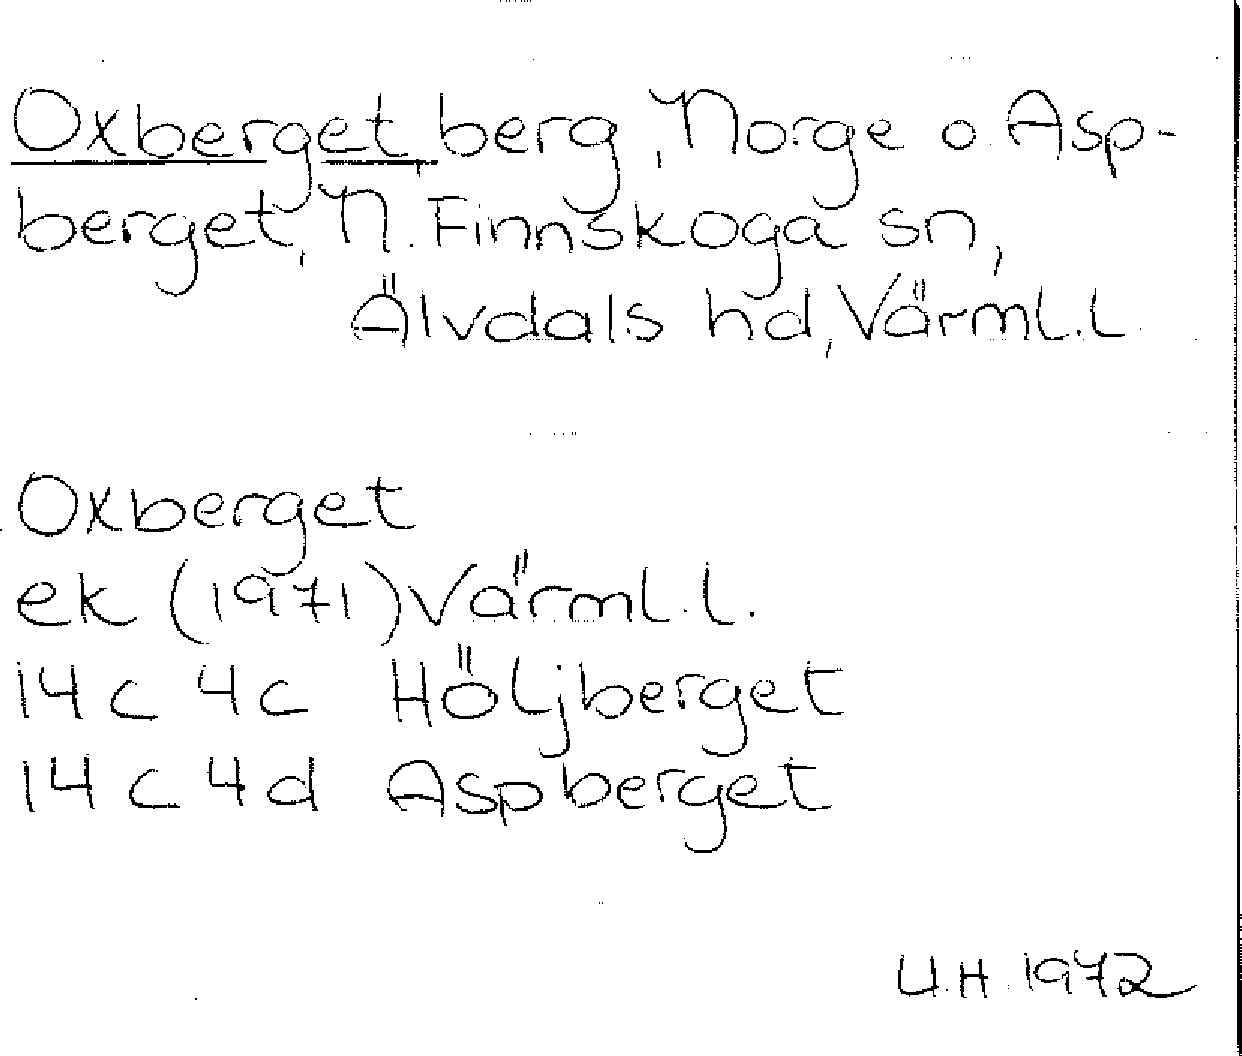 Oxberget, berg, Norge o. Asp-
berget, N. Finnskoga sn,
Älvdals hd, Värml. l.
Oxberget
ek (1971) Värml. l.
14 c 4 c Höljberget
14 c 4 d Aspberget
U.H. 1972